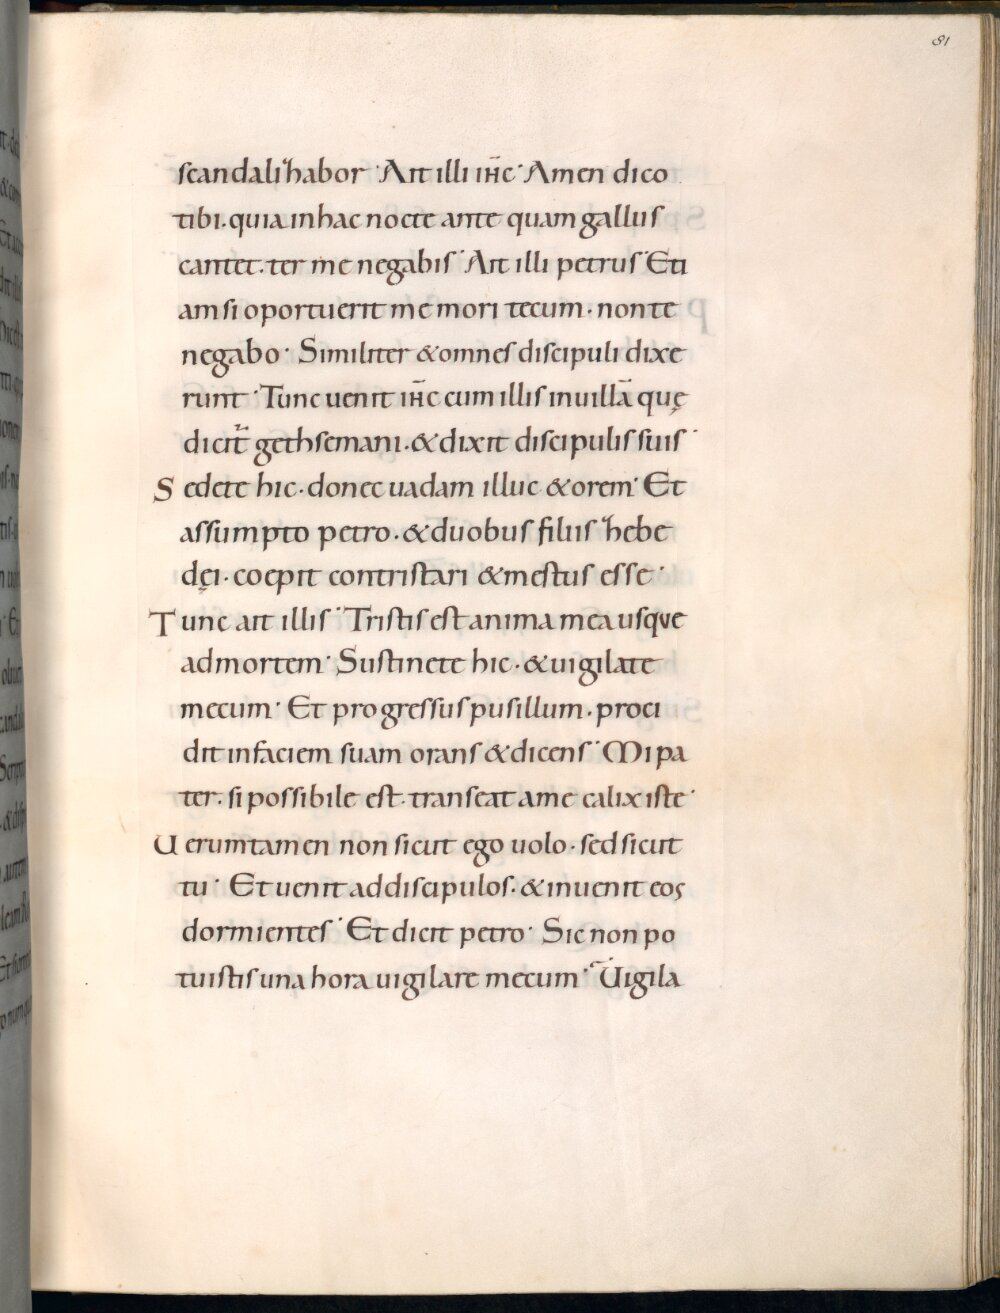 81
scandalihabor · Ait illi ihc · Amen dico
tibi · quia inhac nocte ante quam gallus
cantet · ter me negabis · Ait illi petrus · Eti
am si oportuerit me mori tecum · non te
negabo · Similiter & omnes discipuli dixe
runt · Tunc uenit ihc cum illis inuillā quę
dicit̄ gethsemani · & dixit discipulis suis ·
Sedete hic · donec uadam illuc & orem · Et
assumpto petro · & duobus filiis hebe
dęi · coepit contristari & mestus esse ·
Tunc ait illis · Tristis est anima mea usque
admortem · Sustinete hic · & uigilate
mecum · Et progressus pusillum · proci
dit infaciem suam orans & dicens · Mi pa
ter · si possibile est · transeat ame calix iste ·
Uerumtamen non sicut ego uolo · sed sicut
tu · Et uenit addiscipulos · & inuenit eos
dormientes · Et dicit petro · Sic non po
tuistis una hora uigilare mecum · Uigila